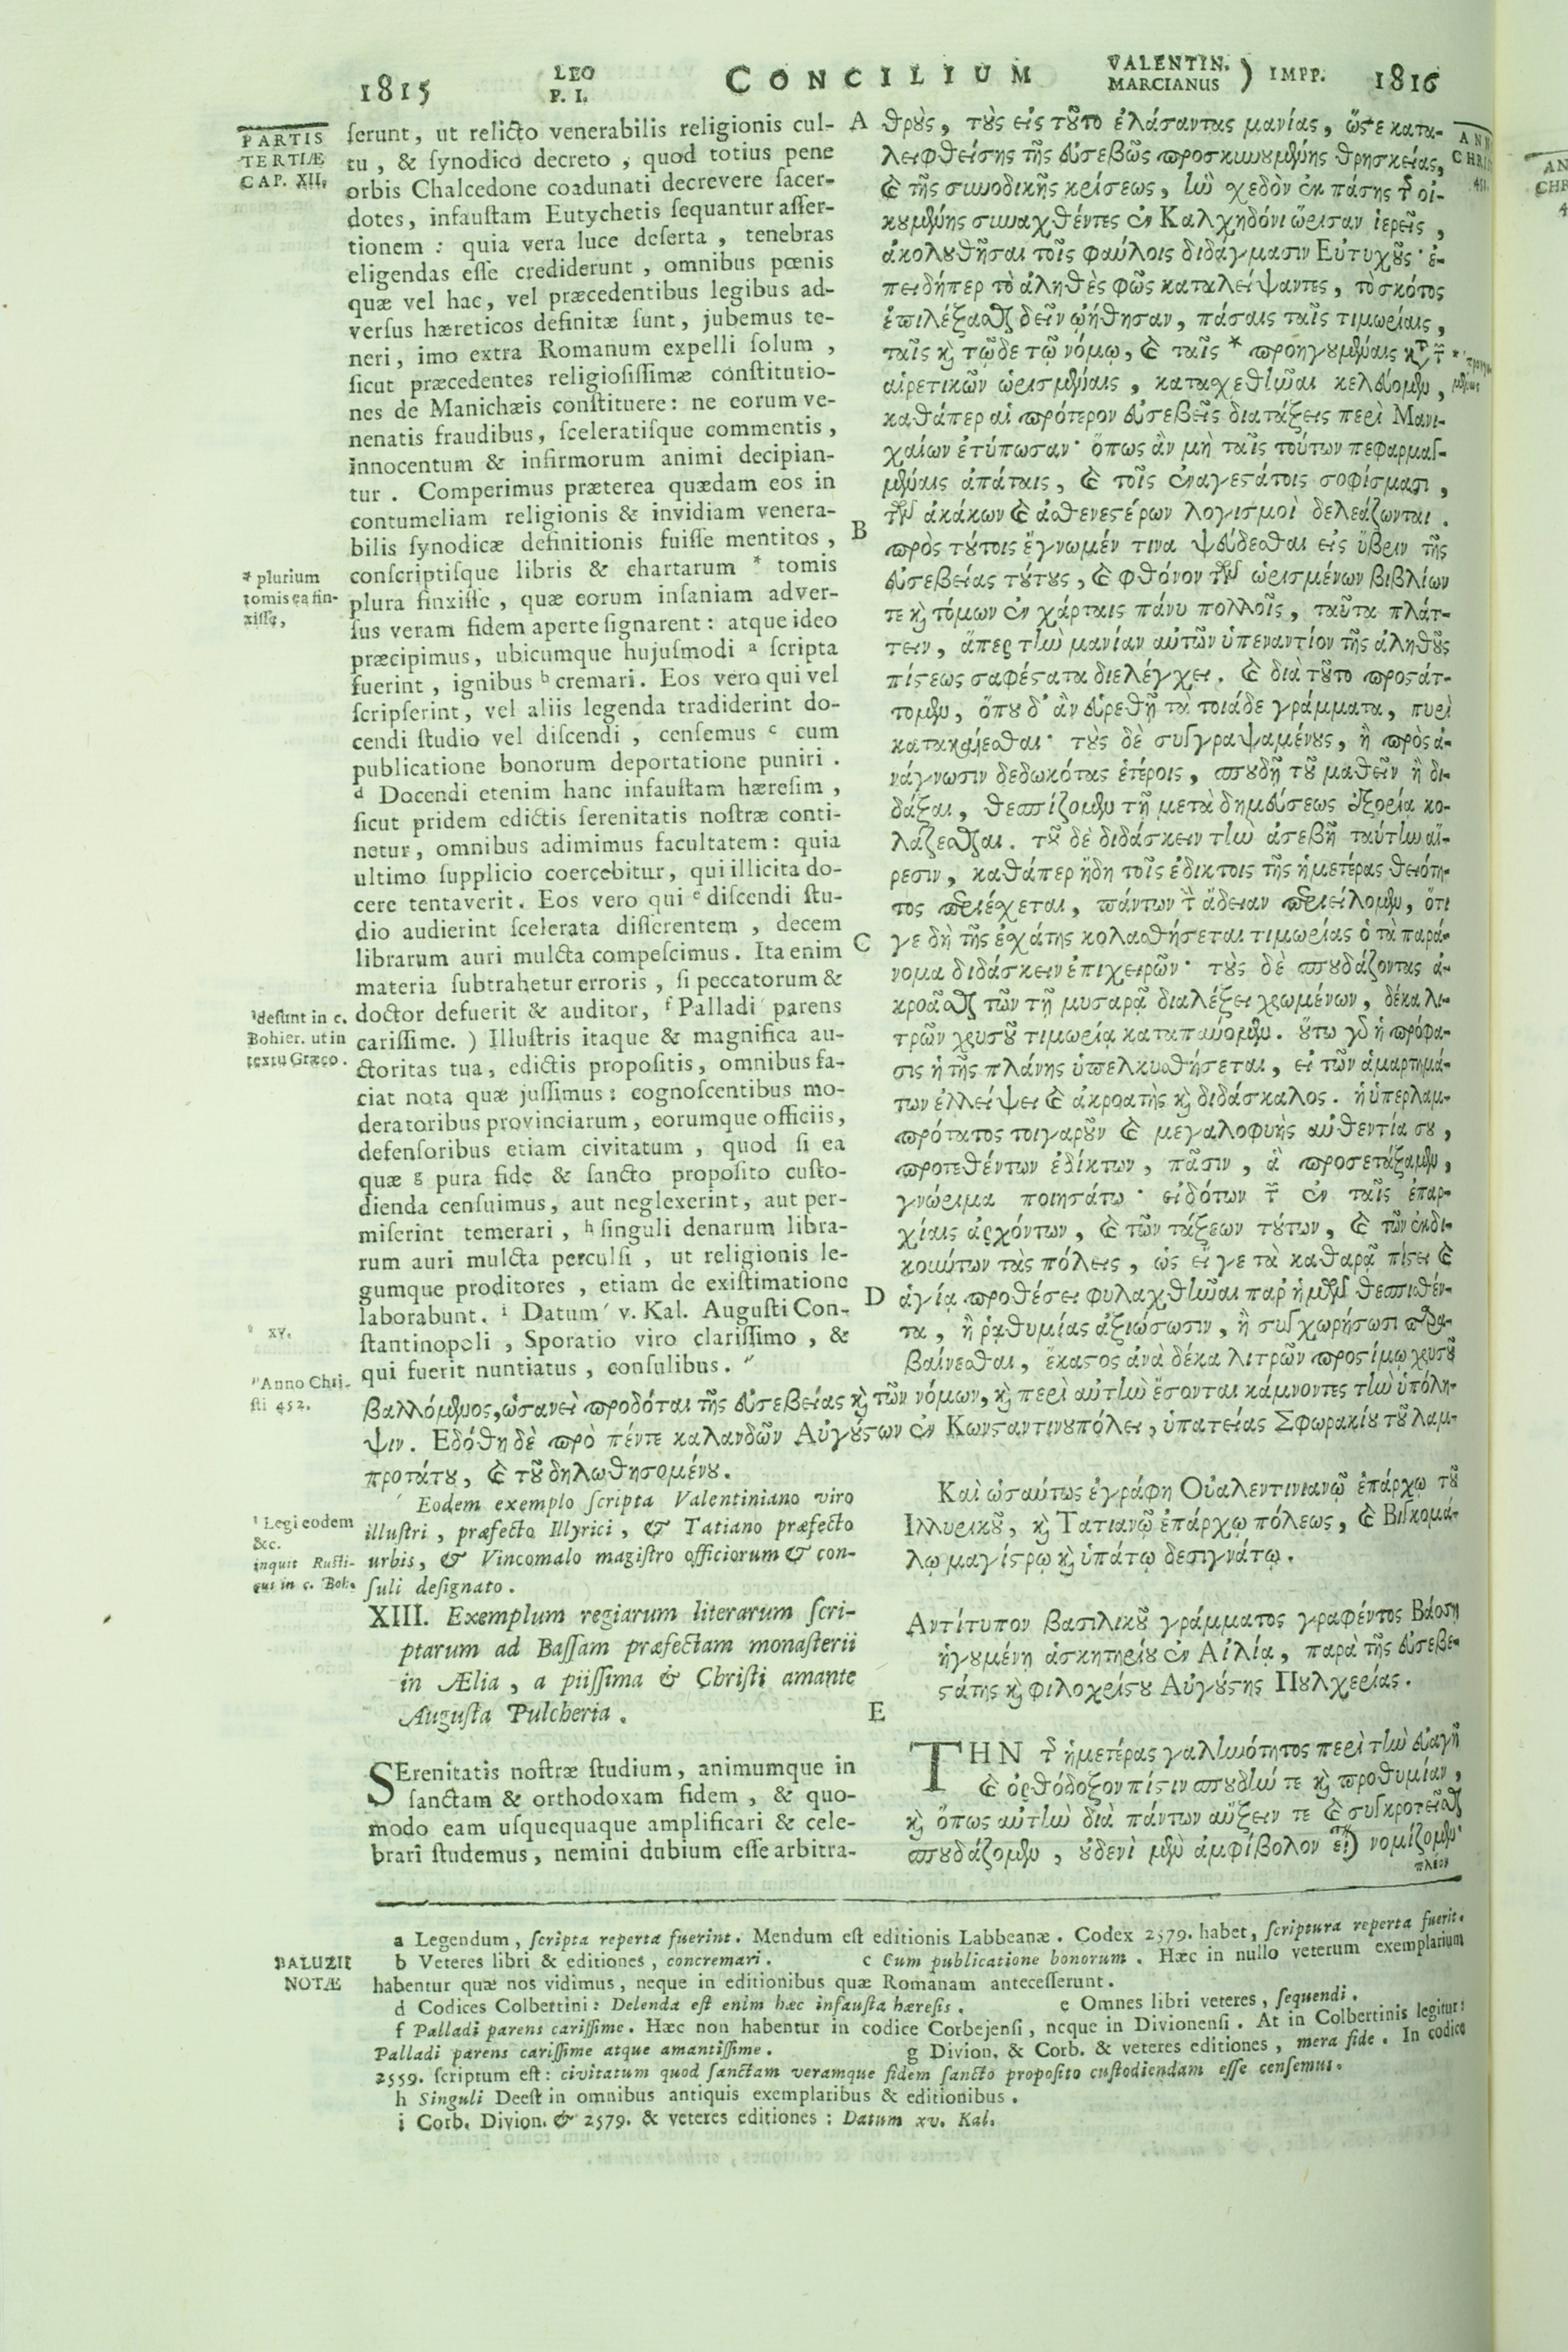 1815
LEO
P. I.
CONCILIUM
VALENTIN.
MARCIANUS ) IMPP.
1816
PARTIS
TERTIÆ
CAP. XII.
ſerunt, ut relicto venerabilis religionis cul-
tu, & ſynodico decreto, quod totius pene
orbis Chalcedone coadunati decrevere ſacer-
dotes, infauſtam Eutychetis ſequantur aſſer-
tionem: quia vera luce deſerta, tenebras
eligendas eſſe crediderunt, omnibus pœnis
quæ vel hac, vel præcedentibus legibus ad-
verſus hæreticos definitæ ſunt, jubemus te-
neri, imo extra Romanum expelli ſolum,
ſicut præcedentes religioſiſſimæ conſtitutio-
nes de Manichæis conſtituere: ne eorum ve-
nenatis fraudibus, ſceleratiſque commentis,
innocentum & infirmorum animi decipian-
tur. Comperimus præterea quædam eos in
contumeliam religionis & invidiam venera-
bilis ſynodicæ definitionis fuiſſe mentitos,
conſcriptiſque libris & chartarum * tomis
plura finxiſſe, quæ eorum inſaniam adver-
ſus veram fidem aperte ſignarent: atque ideo
præcipimus, ubicumque hujuſmodi a ſcripta
fuerint, ignibus b cremari. Eos vero qui vel
ſcripſerint, vel aliis legenda tradiderint do-
cendi ſtudio vel diſcendi, cenſemus c cum
publicatione bonorum deportatione puniri.
d Docendi etenim hanc infauſtam hæreſim,
ſicut pridem edictis ſerenitatis noſtræ conti-
netur, omnibus adimimus facultatem: quia
ultimo ſupplicio coercebitur, qui illicita do-
cere tentaverit. Eos vero qui e diſcendi ſtu-
dio audierint ſcelerata diſſerentem, decem
librarum auri mulcta compeſcimus. Ita enim
materia ſubtrahetur erroris, ſi peccatorum &
doctor defuerit & auditor, f Palladi parens
cariſſime. ) Illuſtris itaque & magnifica au-
ctoritas tua, edictis propoſitis, omnibus fa-
ciat nota quæ juſſimus: cognoſcentibus mo-
deratoribus provinciarum, eorumque officiis,
defenſoribus etiam civitatum, quod ſi ea
quæ g pura fide & ſancto propoſito cuſto-
dienda cenſuimus, aut neglexerint, aut per-
miſerint temerari, h ſinguli denarum libra-
rum auri mulcta perculſi, ut religionis le-
gumque proditores, etiam de exiſtimatione
laborabunt. i Datum v. Kal. Auguſti Con-
ſtantinopoli, Sporatio viro clariſſimo, &
qui fuerit nuntiatus, conſulibus.
* plurium
tomis ea fin-
xiſſe,
deſunt in c.
Bohier. ut in
textu Græco.
xv.
Anno Chri-
ſti 452.
A
B
C
D
E
θροὺς, τοὺς εἰς τοῦτο ἐλάσαντας μανίας, ὥστε κατα-
λειφθείσης τῆς εὐσεβῶς προσκυνουμένης θρησκείας,
καὶ τῆς συνοδικῆς κρίσεως, ἣν σχεδὸν ἐκ πάσης τῆς οἰ-
κουμένης συναχθέντες ἐν Καλχηδόνι ὥρισαν ἱερεῖς,
ἀκολουθῆσαι τοῖς φαύλοις διδάγμασιν Εὐτυχοῦς· ἐ-
πειδήπερ τὸ ἀληθὲς φῶς καταλείψαντες, τὸ σκότος
ἐπιλέξασθαι δεῖν ᾠήθησαν, πάσαις ταῖς τιμωρίαις,
ταῖς καὶ τῷδε τῷ νόμῳ, καὶ ταῖς * προηγουμέναις κατὰ τῶν
αἱρετικῶν ὡρισμέναις, κατασχεθῆναι κελεύομεν,
καθάπερ αἱ πρότερον εὐσεβεῖς διατάξεις περὶ Μανι-
χαίων ἐτύπωσαν· ὅπως ἂν μὴ ταῖς τούτων πεφαρμαγ-
μέναις ἀπάταις, καὶ τοῖς ἐναγεστάτοις σοφίσμασι,
τῶν ἀκάκων καὶ ἀσθενεστέρων λογισμοὶ δελεάζωνται.
πρὸς τούτοις ἔγνωμέν τινα ψεύδεσθαι εἰς ὕβριν τῆς
εὐσεβείας τούτους, καὶ φθόνον τῶν ὡρισμένων βιβλίων
τε καὶ τόμων ἐν χάρταις πάνυ πολλοῖς, ταῦτα πλάτ-
τειν, ἅπερ τὴν μανίαν αὐτῶν ὑπεναντίον τῆς ἀληθοῦς
πίστεως σαφέστατα διελέγχει. καὶ διὰ τοῦτο προστάτ-
τομεν, ὅπου δ' ἂν εὑρεθῇ τὰ τοιάδε γράμματα, πυρὶ
κατακαίεσθαι· τοὺς δὲ συγγραψαμένους, ἢ πρὸς ἀ-
νάγνωσιν δεδωκότας ἑτέροις, σπουδῇ τοῦ μαθεῖν ἢ δι-
δάξαι, θεσπίζομεν τῇ μετὰ δημεύσεως ἐξορίᾳ κο-
λάζεσθαι. τοῦ δὲ διδάσκειν τὴν ἀσεβῆ ταύτην αἵ-
ρεσιν, καθάπερ ἤδη τοῖς ἐδίκτοις τῆς ἡμετέρας θειότη-
τος περιέχεται, πάντων τὴν ἄδειαν περιείλομεν, ὅτι
γε δὴ τῆς ἐσχάτης κολασθήσεται τιμωρίας ὁ τὰ παρά-
νομα διδάσκειν ἐπιχειρῶν· τοὺς δὲ σπουδάζοντας ἀ-
κροᾶσθαι τῶν τῇ μυσαρᾷ διαλέξει χρωμένων, δέκα λι-
τρῶν χρυσοῦ τιμωρίᾳ καταπαύομεν. οὕτω γὰρ ἡ πρόφα-
σις ἡ τῆς πλάνης ὑπελκυσθήσεται, εἰ τῶν ἁμαρτημά-
των ἐλλείψει καὶ ἀκροατὴς καὶ διδάσκαλος. ἡ ὑπερλαμ-
πρότατος τοιγαροῦν καὶ μεγαλοφυὴς αὐθεντία σου,
προτεθέντων ἐδίκτων, πᾶσιν, ἃ προσετάξαμεν,
γνώριμα ποιησάτω· εἰδότων τῶν ἐν ταῖς ἐπαρ-
χίαις ἀρχόντων, καὶ τῶν τάξεων τούτων, καὶ τῶν ἐκδι-
κούντων τὰς πόλεις, ὡς εἴ γε τὰ καθαρᾷ πίστει καὶ
ἁγίᾳ προθέσει φυλαχθῆναι παρ' ἡμῶν θεσπισθέν-
τα, ἢ ῥᾳθυμίας ἀξιώσωσιν, ἢ συγχωρήσωσι παρα-
βαίνεσθαι, ἕκαστος ἀνὰ δέκα λιτρῶν προστίμῳ χρυσοῦ
βαλλόμενος, ὡσανεὶ προδόται τῆς εὐσεβείας καὶ τῶν νόμων, καὶ περὶ αὐτὴν ἔσονται κάμνοντες τὴν ὑπόλη-
ψιν. Ἐδόθη δὲ πρὸ πέντε καλανδῶν Αὐγούστων ἐν Κωνσταντινουπόλει, ὑπατείας Σφωρακίου τοῦ λαμ-
προτάτου, καὶ τοῦ δηλωθησομένου.
Eodem exemplo ſcripta Valentiniano viro
illuſtri, præfecto Illyrici, & Tatiano præfecto
urbis, & Vincomalo magiſtro officiorum & con-
ſuli deſignato.
Legi eodem
&c.
inquit Ruſti-
cus in c. Boh.
Καὶ ὡσαύτως ἐγράφη Οὐαλεντινιανῷ ἐπάρχῳ τοῦ
Ἰλλυρικοῦ, καὶ Τατιανῷ ἐπάρχῳ πόλεως, καὶ Βιγκομά-
λῳ μαγίστρῳ καὶ ὑπάτῳ δεσιγνάτῳ.
XIII. Exemplum regiarum literarum ſcri-
ptarum ad Baſſam præfectam monaſterii
in Ælia, a piiſſima & Chriſti amante
Auguſta Pulcheria.
Ἀντίτυπον βασιλικοῦ γράμματος γραφέντος Βάσσῃ
ἡγουμένῃ ἀσκητηρίου ἐν Αἰλίᾳ, παρὰ τῆς εὐσεβε-
στάτης καὶ φιλοχρίστου Αὐγούστης Πουλχερίας.
SErenitatis noſtræ ſtudium, animumque in
ſanctam & orthodoxam fidem, & quo-
modo eam uſquequaque amplificari & cele-
brari ſtudemus, nemini dubium eſſe arbitra-
ΤΗΝ τῆς ἡμετέρας γαληνότητος περὶ τὴν εὐαγῆ
καὶ ὀρθόδοξον πίστιν σπουδήν τε καὶ προθυμίαν,
καὶ ὅπως αὐτὴν διὰ πάντων αὔξειν τε καὶ συγκροτεῖσθαι
σπουδάζομεν, οὐδενὶ μὲν ἀμφίβολον εἶναι νομίζομεν·
πλέον
BALUZII
NOTÆ
a Legendum, ſcripta reperta fuerint. Mendum eſt editionis Labbeanæ. Codex 2579. habet, ſcriptura reperta fuerit.
b Veteres libri & editiones, concremari. c Cum publicatione bonorum. Hæc in nullo veterum exemplarium
habentur quæ nos vidimus, neque in editionibus quæ Romanam anteceſſerunt.
d Codices Colbertini: Delenda eſt enim hæc infauſta hæreſis. e Omnes libri veteres, ſequendi.
f Palladi parens cariſſime. Hæc non habentur in codice Corbejenſi, neque in Divionenſi. At in Colbertinis legitur:
Palladi parens cariſſime atque amantiſſime. g Divion. & Corb. & veteres editiones, mera fide. In codice
2559. ſcriptum eſt: civitatum quod ſanctam veramque fidem ſancto propoſito cuſtodiendam eſſe cenſemus.
h Singuli Deeſt in omnibus antiquis exemplaribus & editionibus.
i Corb. Divion. & 2579. & veteres editiones: Datum xv. Kal.